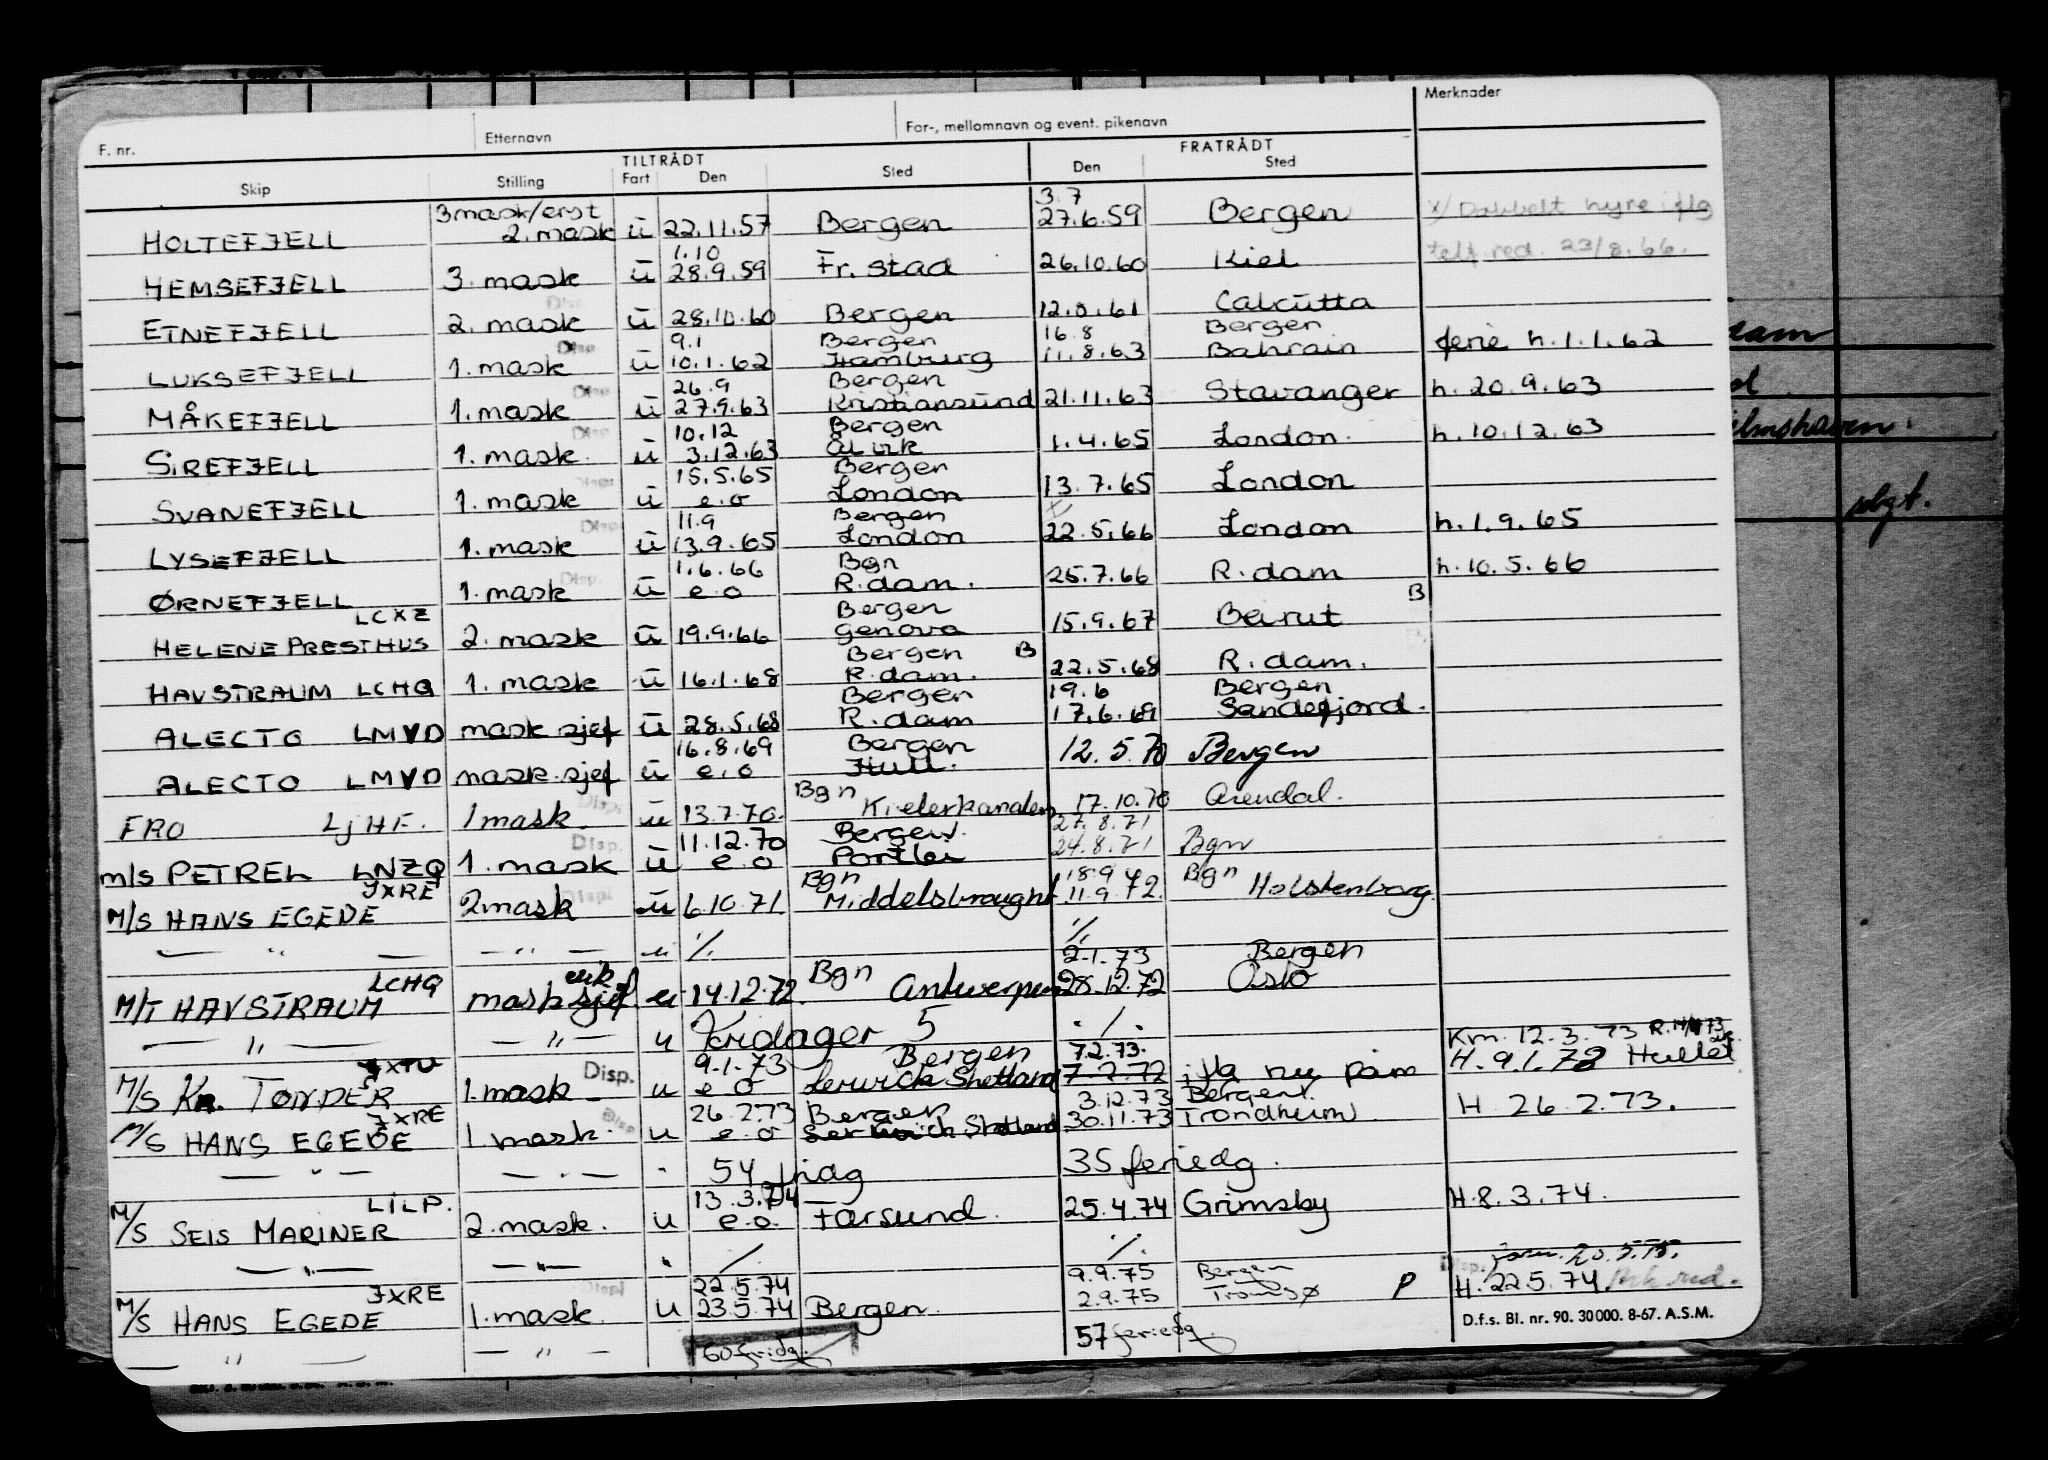 F. nr. Etternavn For-, mellomnavn og event. pikenavn Merknader
TILTRÅDT FRATRÅDT
Skip Stilling Fart Den Sted Den Sted
3 mask/erst 3.7
HOLTEFJELL 2. mask u 22.11.57 Bergen 27.6.59 Bergen x/ Dobbelt hyre iflg
1.10
HEMSEFJELL 3. mask u 28.9.59 Fr. stad 26.10.60 Kiel telf. red. 23/8.66.
Disp.
ETNEFJELL 2. mask u 28.10.60 Bergen 12.8.61 Calcutta
Disp 9.1 Bergen 16.8 Bergen
LUKSEFJELL 1. mask u 10.1.62 Hamburg 11.8.63 Bahrain ferie h. 1.1.62
Disp 26.9 Bergen
MÅKEFJELL 1. mask u 27.9.63 Kristiansund 21.11.63 Stavanger h. 20.9.63
Disp 10.12 Bergen
SIREFJELL 1. mask. u 3.12.63 1.4.65 London. h. 10.12.63
Disp. 15.5.65 Bergen
SVANEFJELL 1. mask u e.o London 13.7.65 London
Disp 11.9 Bergen x/
LYSEFJELL 1. mask u 13.9.65 London 22.5.66 London h. 1.9.65
Disp. 1.6.66 Bgn
ØRNEFJELL 1. mask u e.o R.dam. 25.7.66 R.dam h. 10.5.66
LCXZ Bergen B
HELENE PRESTHUS 2. mask u 19.9.66 Genova 15.9.67 Beirut
Bergen B
HAVSTRAUM LCHQ 1. mask u 16.1.68 R.dam. 22.5.68 R.dam.
Bergen 19.6 Bergen
ALECTO LMVD mask sjef u 28.5.68 R.dam 17.6.69 Sandefjord.
16.8.69 Bergen
ALECTO LMVD mask.sjef u e.o Hull. 12.5.70 Bergen
Disp. Bgn
FRO LJHF. 1 mask u 13.7.70. Kielerkanalen 17.10.70 Arendal.
Disp. 11.12.70 Bergen. 27.8.71
m/s PETREL LNZQ 1. mask u e.o 24.8.71 Bgn
JXRE Displ Bgn 18.9 Bgn
M/S HANS EGEDE 2 mask u 6.10.71 Middelsbrought 11.9.72. Holstenborg.
— " — — " — u ./. ./.
LCHQ vik Bgn 2.1.73 Bergen
M/T HAVSTRAUM mask sjef. u 14.12.72. Antwerpen 28.12.72 Oslo
— " — — " — u Fridager 5 ./.
JXTU Disp. 9.1.73 Bergen 7.2.73. Km. 12.3.73
M/S Kr. TØNDER 1. mask u e o Lerwick Shetland 7.2.72 H. 9.1.72
JXRE Disp 26.2.73 Bergen 3.12.73 Bergen.
M/S HANS EGEDE 1 mask. u e.o Lerwick Shetland 30.11.73 Trondheim H 26.2.73.
— " — — " — " 54 fridg 35 feriedg.
LILP. 13.3.74
M/S SEIS MARINER 2. mask. u e.o. Farsund. 25.4.74 Grimsby H. 8.3.74.
— " — — " — " ./. ./.
JXRE Displ 22.5.74 9.9.75 Bergen Disp.
M/S HANS EGEDE 1. mask. u 23.5.74 Bergen. 2.9.75 Tromsø P H. 22.5.74
— " — — " — 60 fridg. 57 feriedg.
D.f.s. Bl. nr. 90. 30 000. 8-67. A.S.M.